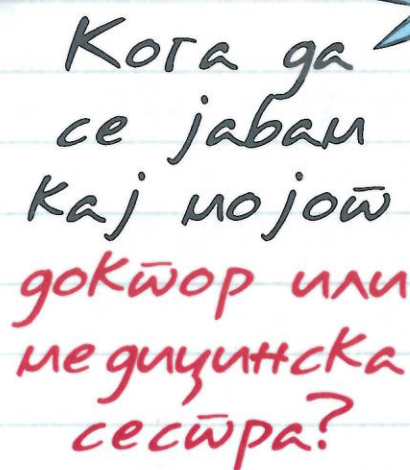 Кога да
се јавам
кај мојот
доктор или
медицинска
сестра?